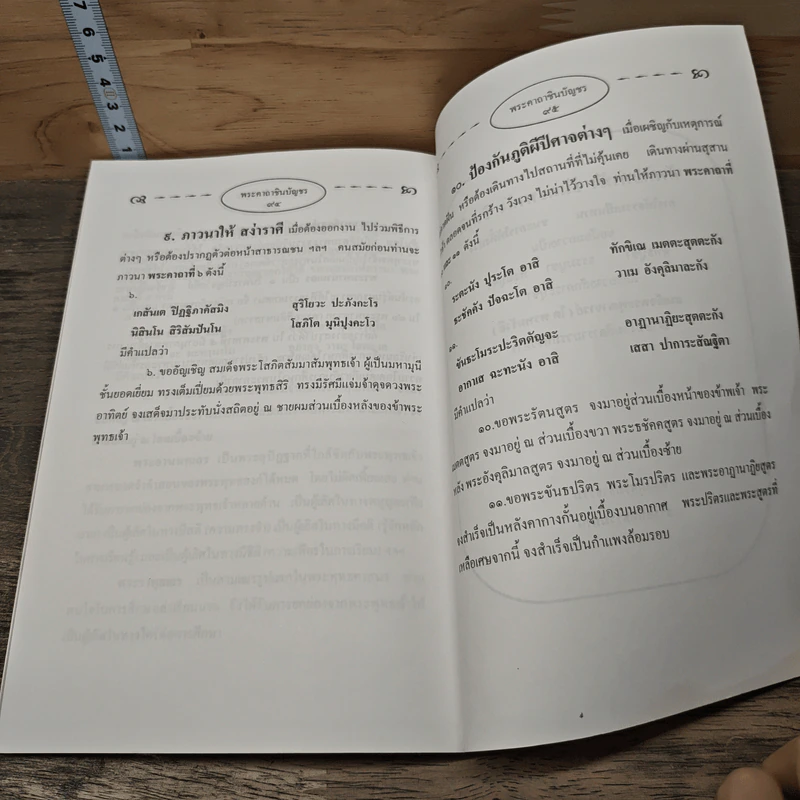 พระคาถาชินบัญชร
๙๔
๙. ภาวนาให้ สง่าราศี เมื่อต้องออกงาน ไปร่วมพิธีการ
ต่างๆ หรือต้องปรากฏตัวต่อหน้าสาธารณชน ฯลฯ คนสมัยก่อนท่านจะ
ภาวนา พระคาถาที่ ๖ ดังนี้
๖.
เกสันเต ปิฏฐิภาคัสมิง สุริโยวะ ปะภังกะโร
นิสินโน สิริสัมปันโน โสภิโต มุนิปุงคะโว
มีคำแปลว่า
๖. ขออัญเชิญ สมเด็จพระโสภิตสัมมาสัมพุทธเจ้า ผู้เป็นมหามุนี
ชั้นยอดเยี่ยม ทรงเต็มเปี่ยมด้วยพระพุทธสิริ ทรงมีรัศมีแจ่มจ้าดุจดวงพระ
อาทิตย์ จงเสด็จมาประทับนั่งสถิตอยู่ ณ ชายผมส่วนเบื้องหลังของข้าพระ
พุทธเจ้า
พระคาถาชินบัญชร
๙๕
๑๐. ป้องกันภูติผีปีศาจต่างๆ เมื่อเผชิญกับเหตุการณ์
หรือต้องเดินทางไปสถานที่ที่ไม่คุ้นเคย เดินทางผ่านสุสาน
ตลอดจนที่รกร้าง วังเวง ไม่น่าไว้วางใจ ท่านให้ภาวนา พระคาถาที่
๑๑ ดังนี้
๑๐.
ระตะนัง ปุระโต อาสิ ทักขิเณ เมตตะสุตตะกัง
ธะชัคคัง ปัจฉะโต อาสิ วาเม อังคุลิมาละกัง
๑๑.
ขันธะโมระปะริตตัญจะ อาฏานาฏิยะสุตตะกัง
อากาเส ฉะทะนัง อาสิ เสสา ปาการะสัณฐิตา
มีคำแปลว่า
๑๐.ขอพระรัตนสูตร จงมาอยู่ส่วนเบื้องหน้าของข้าพเจ้า พระ
เมตตสูตร จงมาอยู่ ณ ส่วนเบื้องขวา พระธชัคคสูตร จงมาอยู่ ณ ส่วนเบื้อง
หลัง พระอังคุลิมาลสูตร จงมาอยู่ ณ ส่วนเบื้องซ้าย
๑๑.ขอพระขันธปริตร พระโมรปริตร และพระอาฏานาฏิยสูตร
จงสำเร็จเป็นหลังคากางกั้นอยู่เบื้องบนอากาศ พระปริตรและพระสูตรที่
เหลือเศษจากนี้ จงสำเร็จเป็นกำแพงล้อมรอบ
4
7
6
5
4
3
2
1